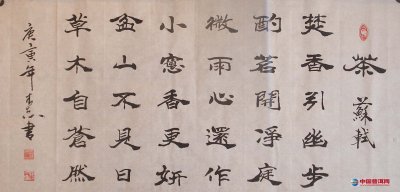 茶 蘇軾
焚香引幽步
酌茗開淨
微雨心還作
小窓香更妍
盆山不見日
草木自蒼然
庚寅年書
中国普洱网